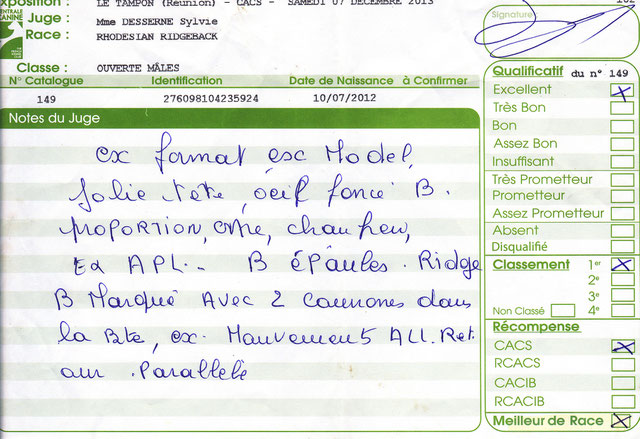 xposition : LE TAMPON (Réunion) - CACS - SAMEDI 07 DECEMBRE 2013
Juge : Mme DESSERNE Sylvie
Race : RHODESIAN RIDGEBACK
CENTRALE
CANINE
Classe : OUVERTE MÂLES
N° Catalogue Identification Date de Naissance à Confirmer
149 276098104235924 10/07/2012
Notes du Juge
ex format esc Model,
Jolie tête, oeil foncé B.
PROPORTION,
Ex APL.. B ÉPAULES. Ridge
B Marqué Avec 2 couronnes dans
la Bte, ex. Mouvements ALL. Ret.
aur . Parallèle
Signature
Qualificatif du n° 149
Excellent X
Très Bon
Bon
Assez Bon
Insuffisant
Très Prometteur
Prometteur
Assez Prometteur
Absent
Disqualifié
Classement 1er X
2e
3e
Non Classé 4e
Récompense
CACS X
RCACS
CACIB
RCACIB
Meilleur de Race X